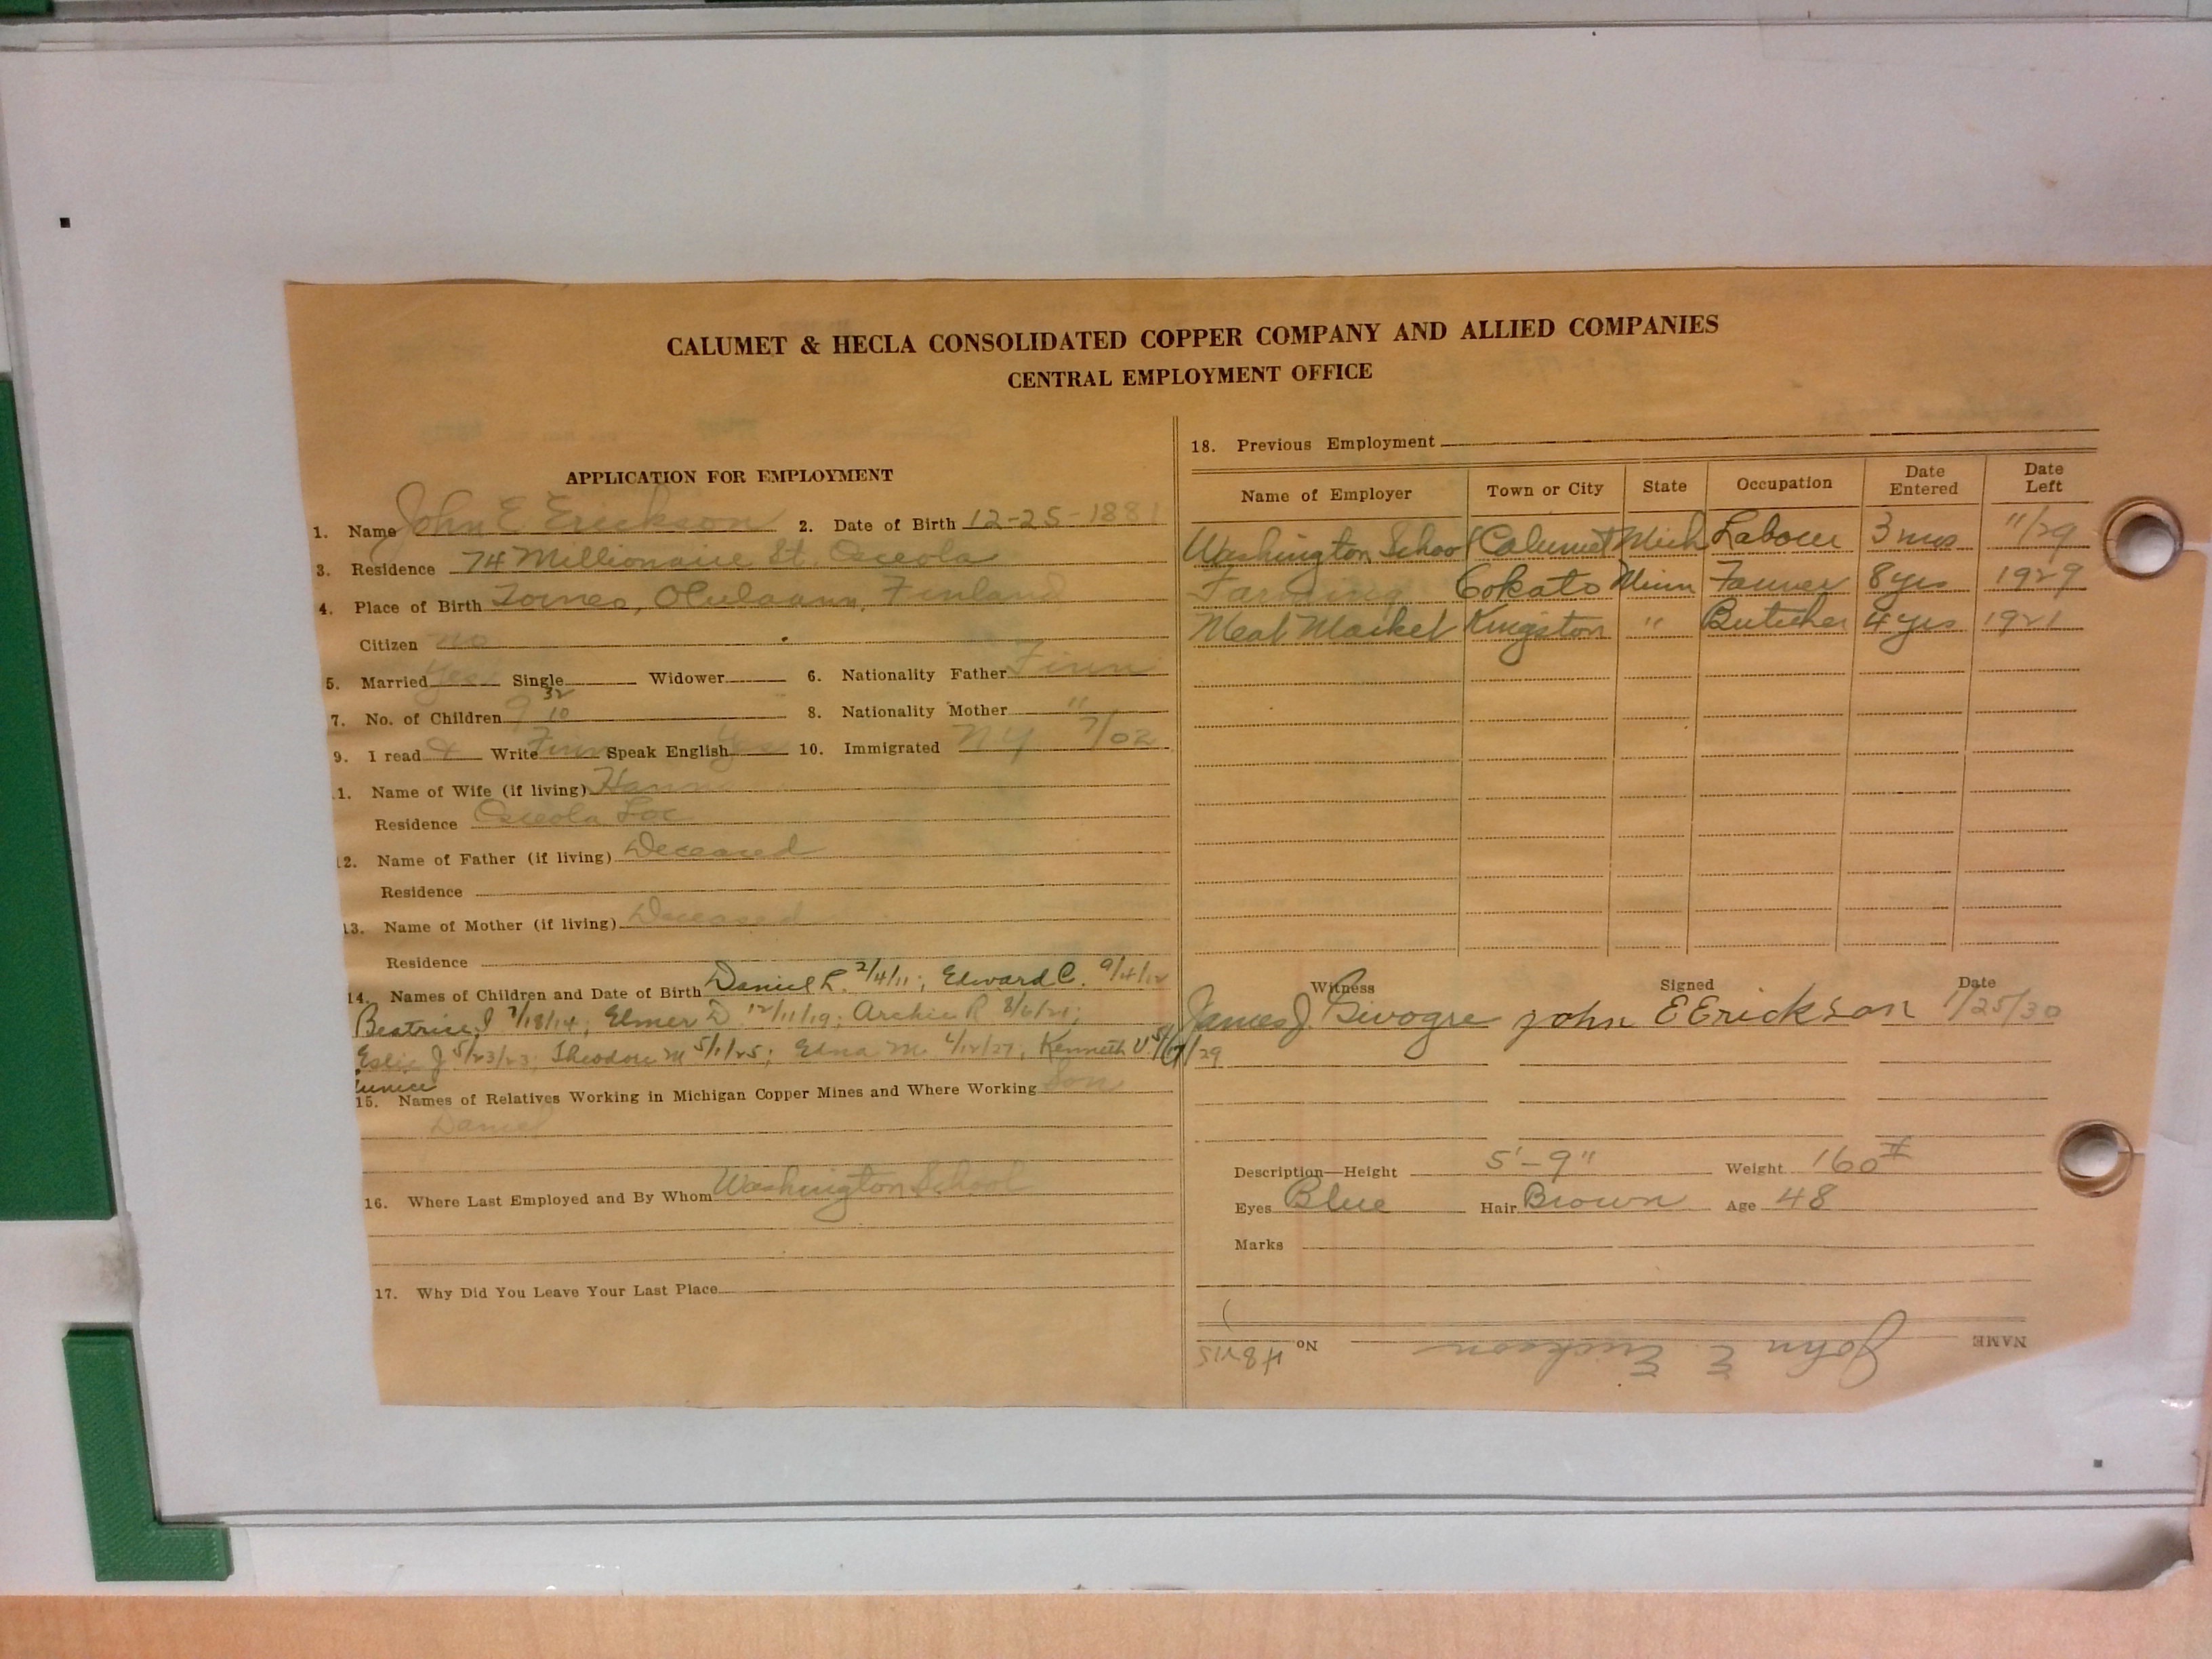 CALUMET & HECLA CONSOLIDATED COPPER COMPANY AND ALLIED COMPANIES
CENTRAL EMPLOYMENT OFFICE
APPLICATION FOR EMPLOYMENT
1. Name John E Erickson 2. Date of Birth 12-25-1881
3. Residence 74 Millionaire St. Osceola
4. Place of Birth Torneo, Finland
Citizen no
5. Married yes Single Widower 6. Nationality Father Finn
32
7. No. of Children 9 10 8. Nationality Mother "
9. I read & Write Finn Speak English yes 10. Immigrated NY 7/02
1. Name of Wife (if living)
Residence Osceola Loc
12. Name of Father (if living) Deceased
Residence
13. Name of Mother (if living) Deceased
Residence
14. Names of Children and Date of Birth Daniel R. 2/4/11; Edward C. 9/4/12
Beatrice I 7/18/14; Elmer D 12/11/19; Archie R 8/6/21;
Eslie J 5/23/23; Theodore M 5/1/25; Edna M. 4/12/27; Kenneth V. 5/17/29
Eunice
15. Names of Relatives Working in Michigan Copper Mines and Where Working Son
Daniel
16. Where Last Employed and By Whom Washington School
17. Why Did You Leave Your Last Place
18. Previous Employment
Name of Employer Town or City State Occupation Date Entered Date Left
Washington School Calumet Mich Labour 3 mos 11/29
Farming Cokato Minn Farmer 8 yrs 1929
Meat Market Kingston " Butcher 4 yrs 1921
Witness Signed Date
James J. John E Erickson 1/25/30
Description—Height 5'-9" Weight 160#
Eyes Blue Hair Brown Age 48
Marks
NAME John E. Erickson No